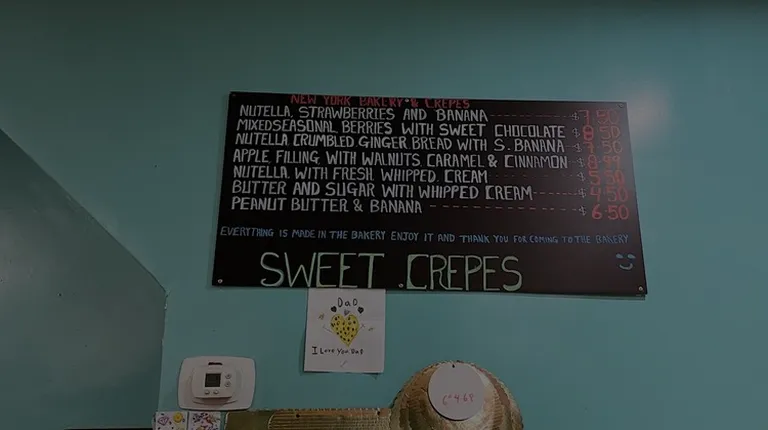 NEW YORK BAKERY & CREPES
NUTELLA, STRAWBERRIES AND BANANA $7.50
MIXEDSEASONAL BERRIES WITH SWEET CHOCOLATE $8.50
NUTELLA CRUMBLED GINGER BREAD WITH S. BANANA $7.50
APPLE, FILLING, WITH WALNUTS, CARAMEL & CINNAMON $8.99
NUTELLA, WITH FRESH, WHIPPED, CREAM $5.50
BUTTER AND SUGAR WITH WHIPPED CREAM $4.50
PEANUT BUTTER & BANANA $6.50
EVERYTHING IS MADE IN THE BAKERY ENJOY IT AND THANK YOU FOR COMING TO THE BAKERY
SWEET .CREPES
Dad
I Love You Dad